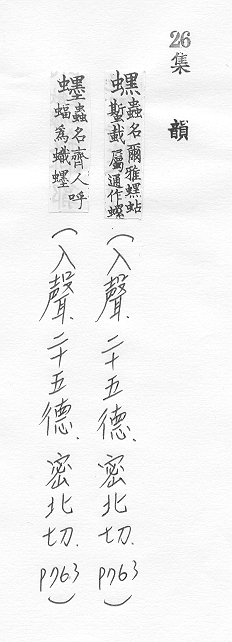 26
集韻
蟔
蟲名爾雅蟔蛅
蟴蛓屬通作
(入聲. 二十五德. 密北切. P763)
䘃
蟲名齊人呼
蝠為蟙䘃
(入聲. 二十五德. 密北切. P763)